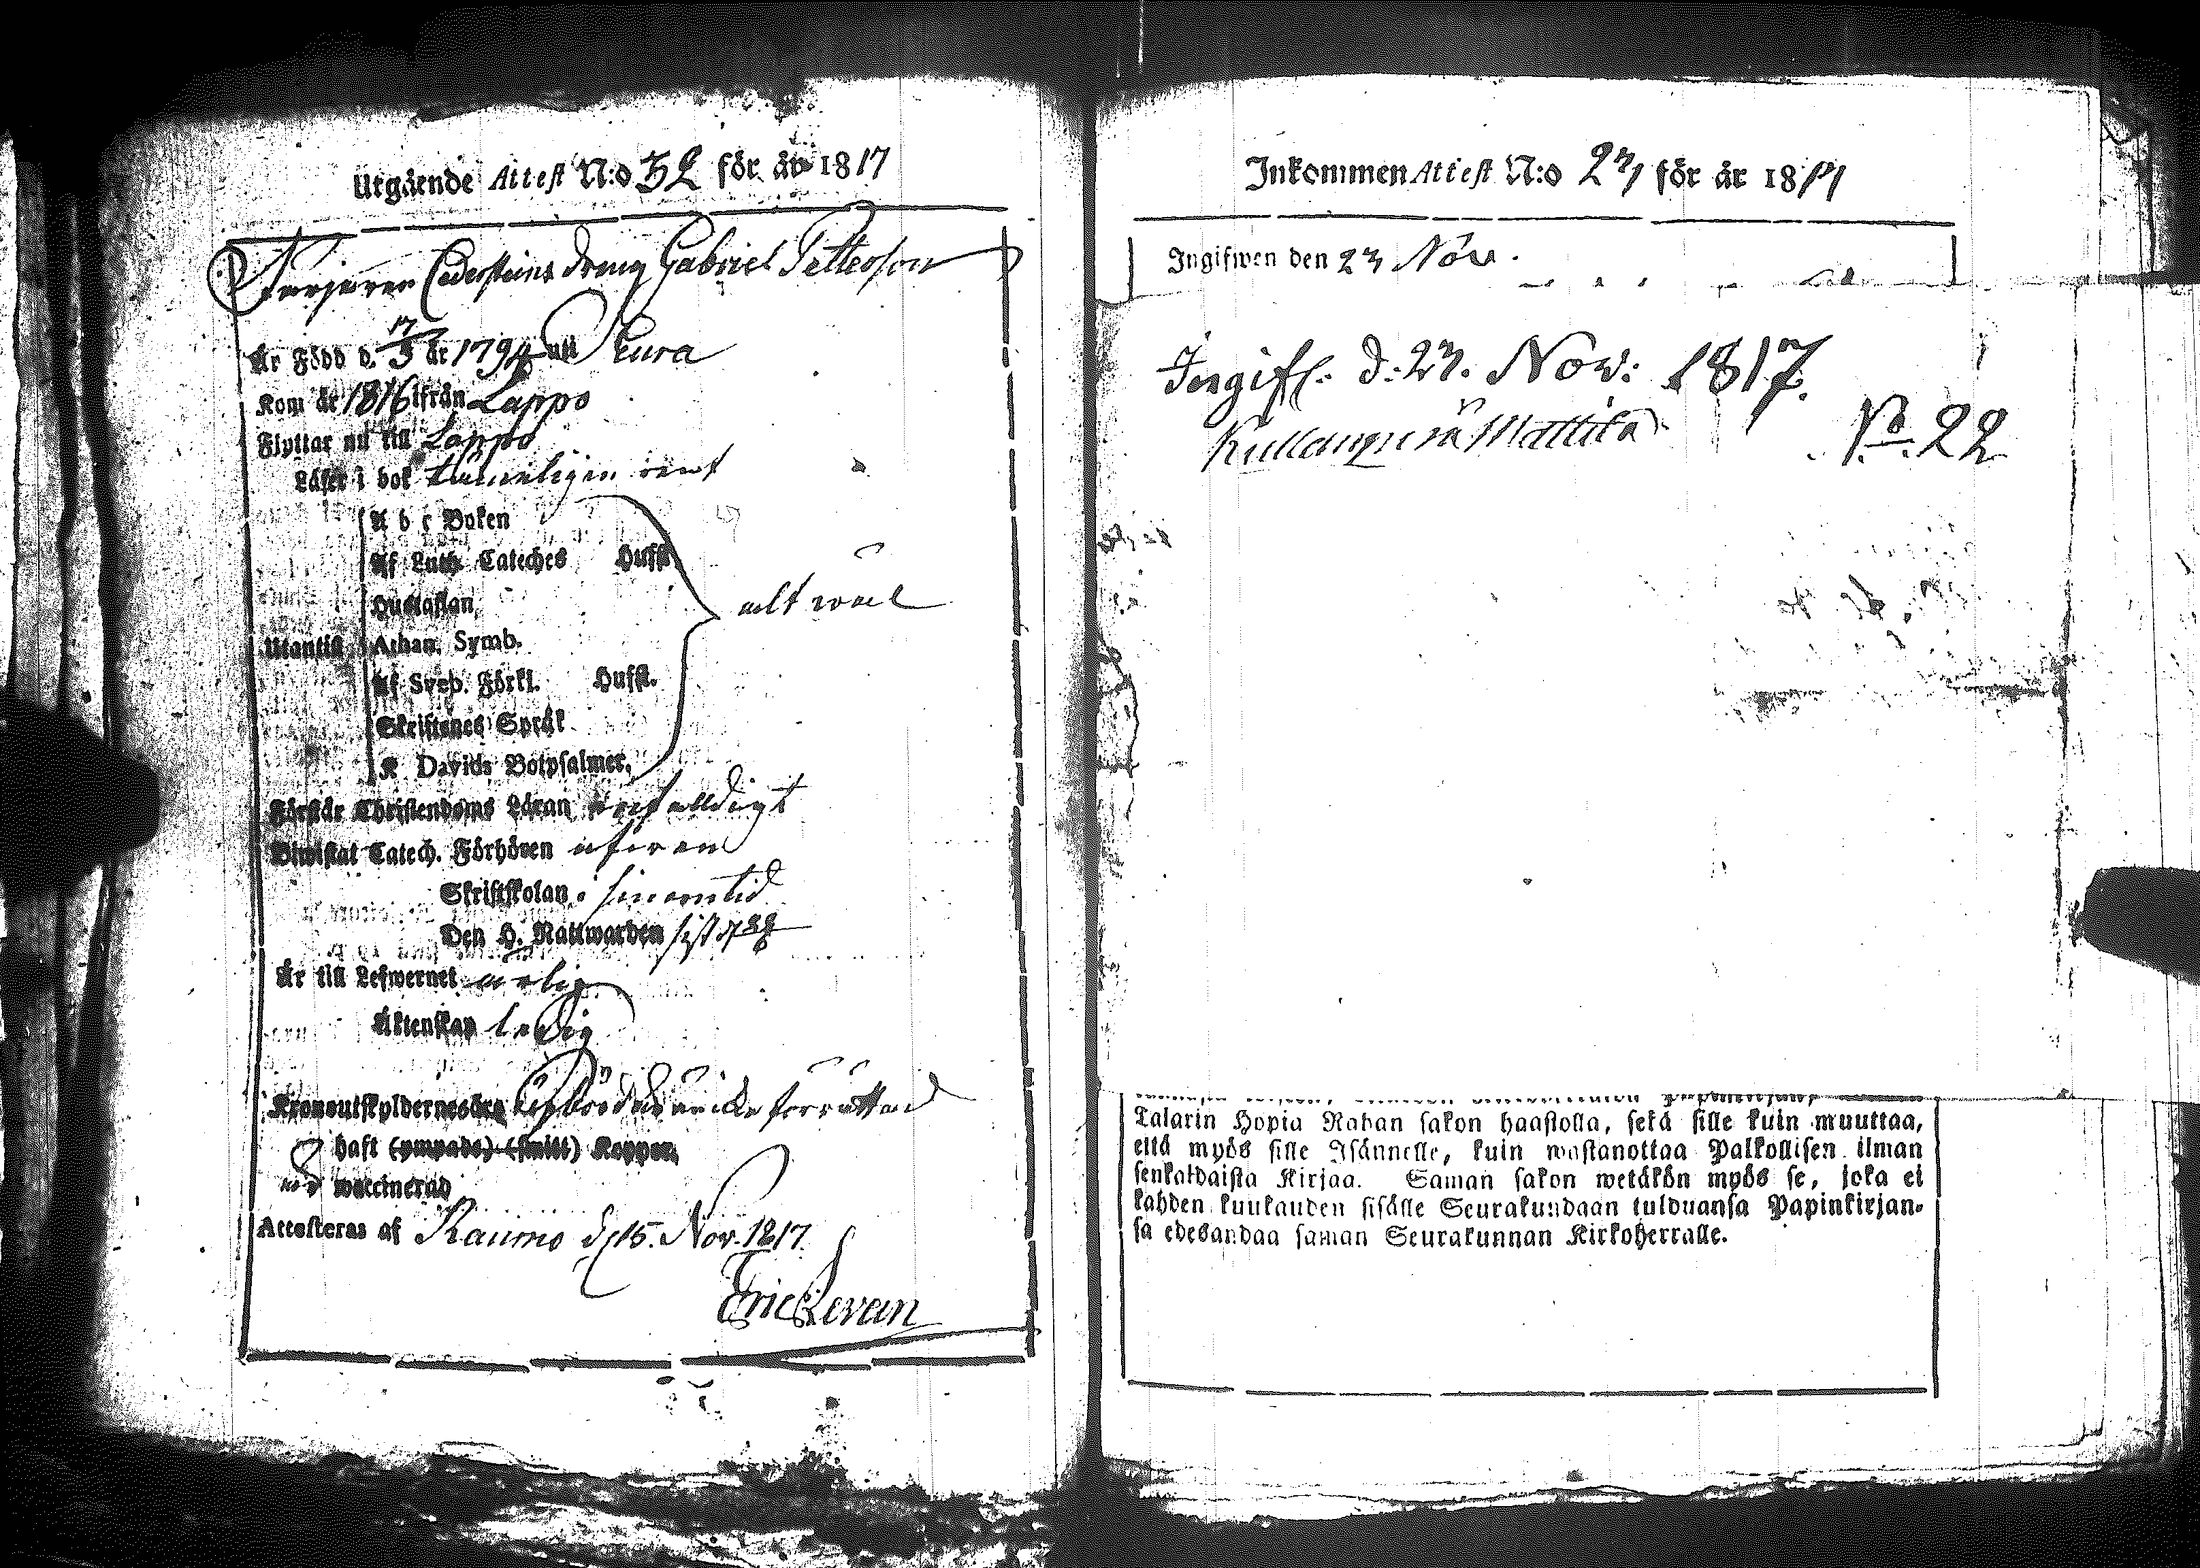 Utgående Attest N:o 32 för år 1817
Cedersteins dräng Gabriel Petterson
Är Född d. 17/3 år 1794 uti Eura
Kom år 1816 ifrån Lappo
Flyttar nu till Lappo
Läser i bok tämeligen rent
A b c Boken
Af Luth. Cateches Hufst.
Hustaflan
alt wäl
Utantill Athan. Symb.
Af Sveb. Förkl. Hufst.
Skriftenes Språk
K Davids Botpsalmer.
Förstår Christendoms Läran enfalldigt
Biwistat Catech. Förhören
Skriftskolan i sinom tid
Den H. Nattwarden sist d
Är till Lefwernet ärlig
Äktenskap ledig
Kronoutskyldernes äro
haft (ympade) (smitt) Koppor,
waccinerad
Attesteras af Raumo d. 15. Nov. 1817.
Eric Levan
Inkommen Attest N:o 23 för år 1817
Ingifwen den 23 Nov.
Ingifl: d: 23. Nov: 1817.
Mattila
No. 22
Talarin Hopia Rahan sakon haastolla, sekä sille kuin muuttaa,
että myös sille Isännelle, kuin wastanottaa Palkollisen ilman
senkaldaista Kirjaa. Saman sakon wetäkön myös se, joka ei
kahden kuukauden sisälle Seurakundaan tulduansa Papinkirjan-
sa edesandaa saman Seurakunnan Kirkoherralle.